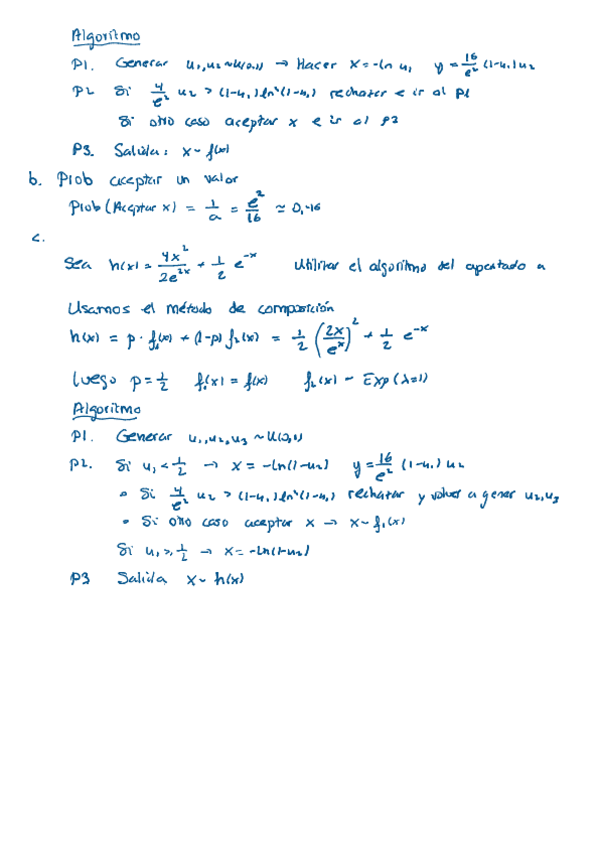 Algoritmo
P1. Generar u₁,u₂ ~ U(0,1) → Hacer x = -ln u₁ y = 16/e² (1-u₁) u₂
P2 Si 4/e² u₂ > (1-u₁) ln²(1-u₁) rechazar e ir al P1
Si otro caso aceptar x e ir al P3
P3. Salida: x ~ f(x)
b. Prob aceptar un valor
Prob (Aceptar x) = 1/a = e²/16 ≈ 0,46
c.
Sea h(x) = 4x²/2e²ˣ + 1/2 e⁻ˣ Utilizar el algoritmo del apartado a
Usamos el método de composición
h(x) = p · f₁(x) + (1-p) f₂(x) = 1/2 (2x/eˣ)² + 1/2 e⁻ˣ
Luego p = 1/2 f₁(x) = f(x) f₂(x) ~ Exp(λ=1)
Algoritmo
P1. Generar u₁,u₂,u₃ ~ U(0,1)
P2. Si u₁ < 1/2 → x = -ln(1-u₂) y = 16/e² (1-u₁) u₂
• Si 4/e² u₂ > (1-u₁) ln²(1-u₁) rechazar y volver a gener u₂,u₃
• Si otro caso aceptar x → x ~ f₁(x)
Si u₁ ≥ 1/2 → x = -ln(1-u₂)
P3 Salida x ~ h(x)